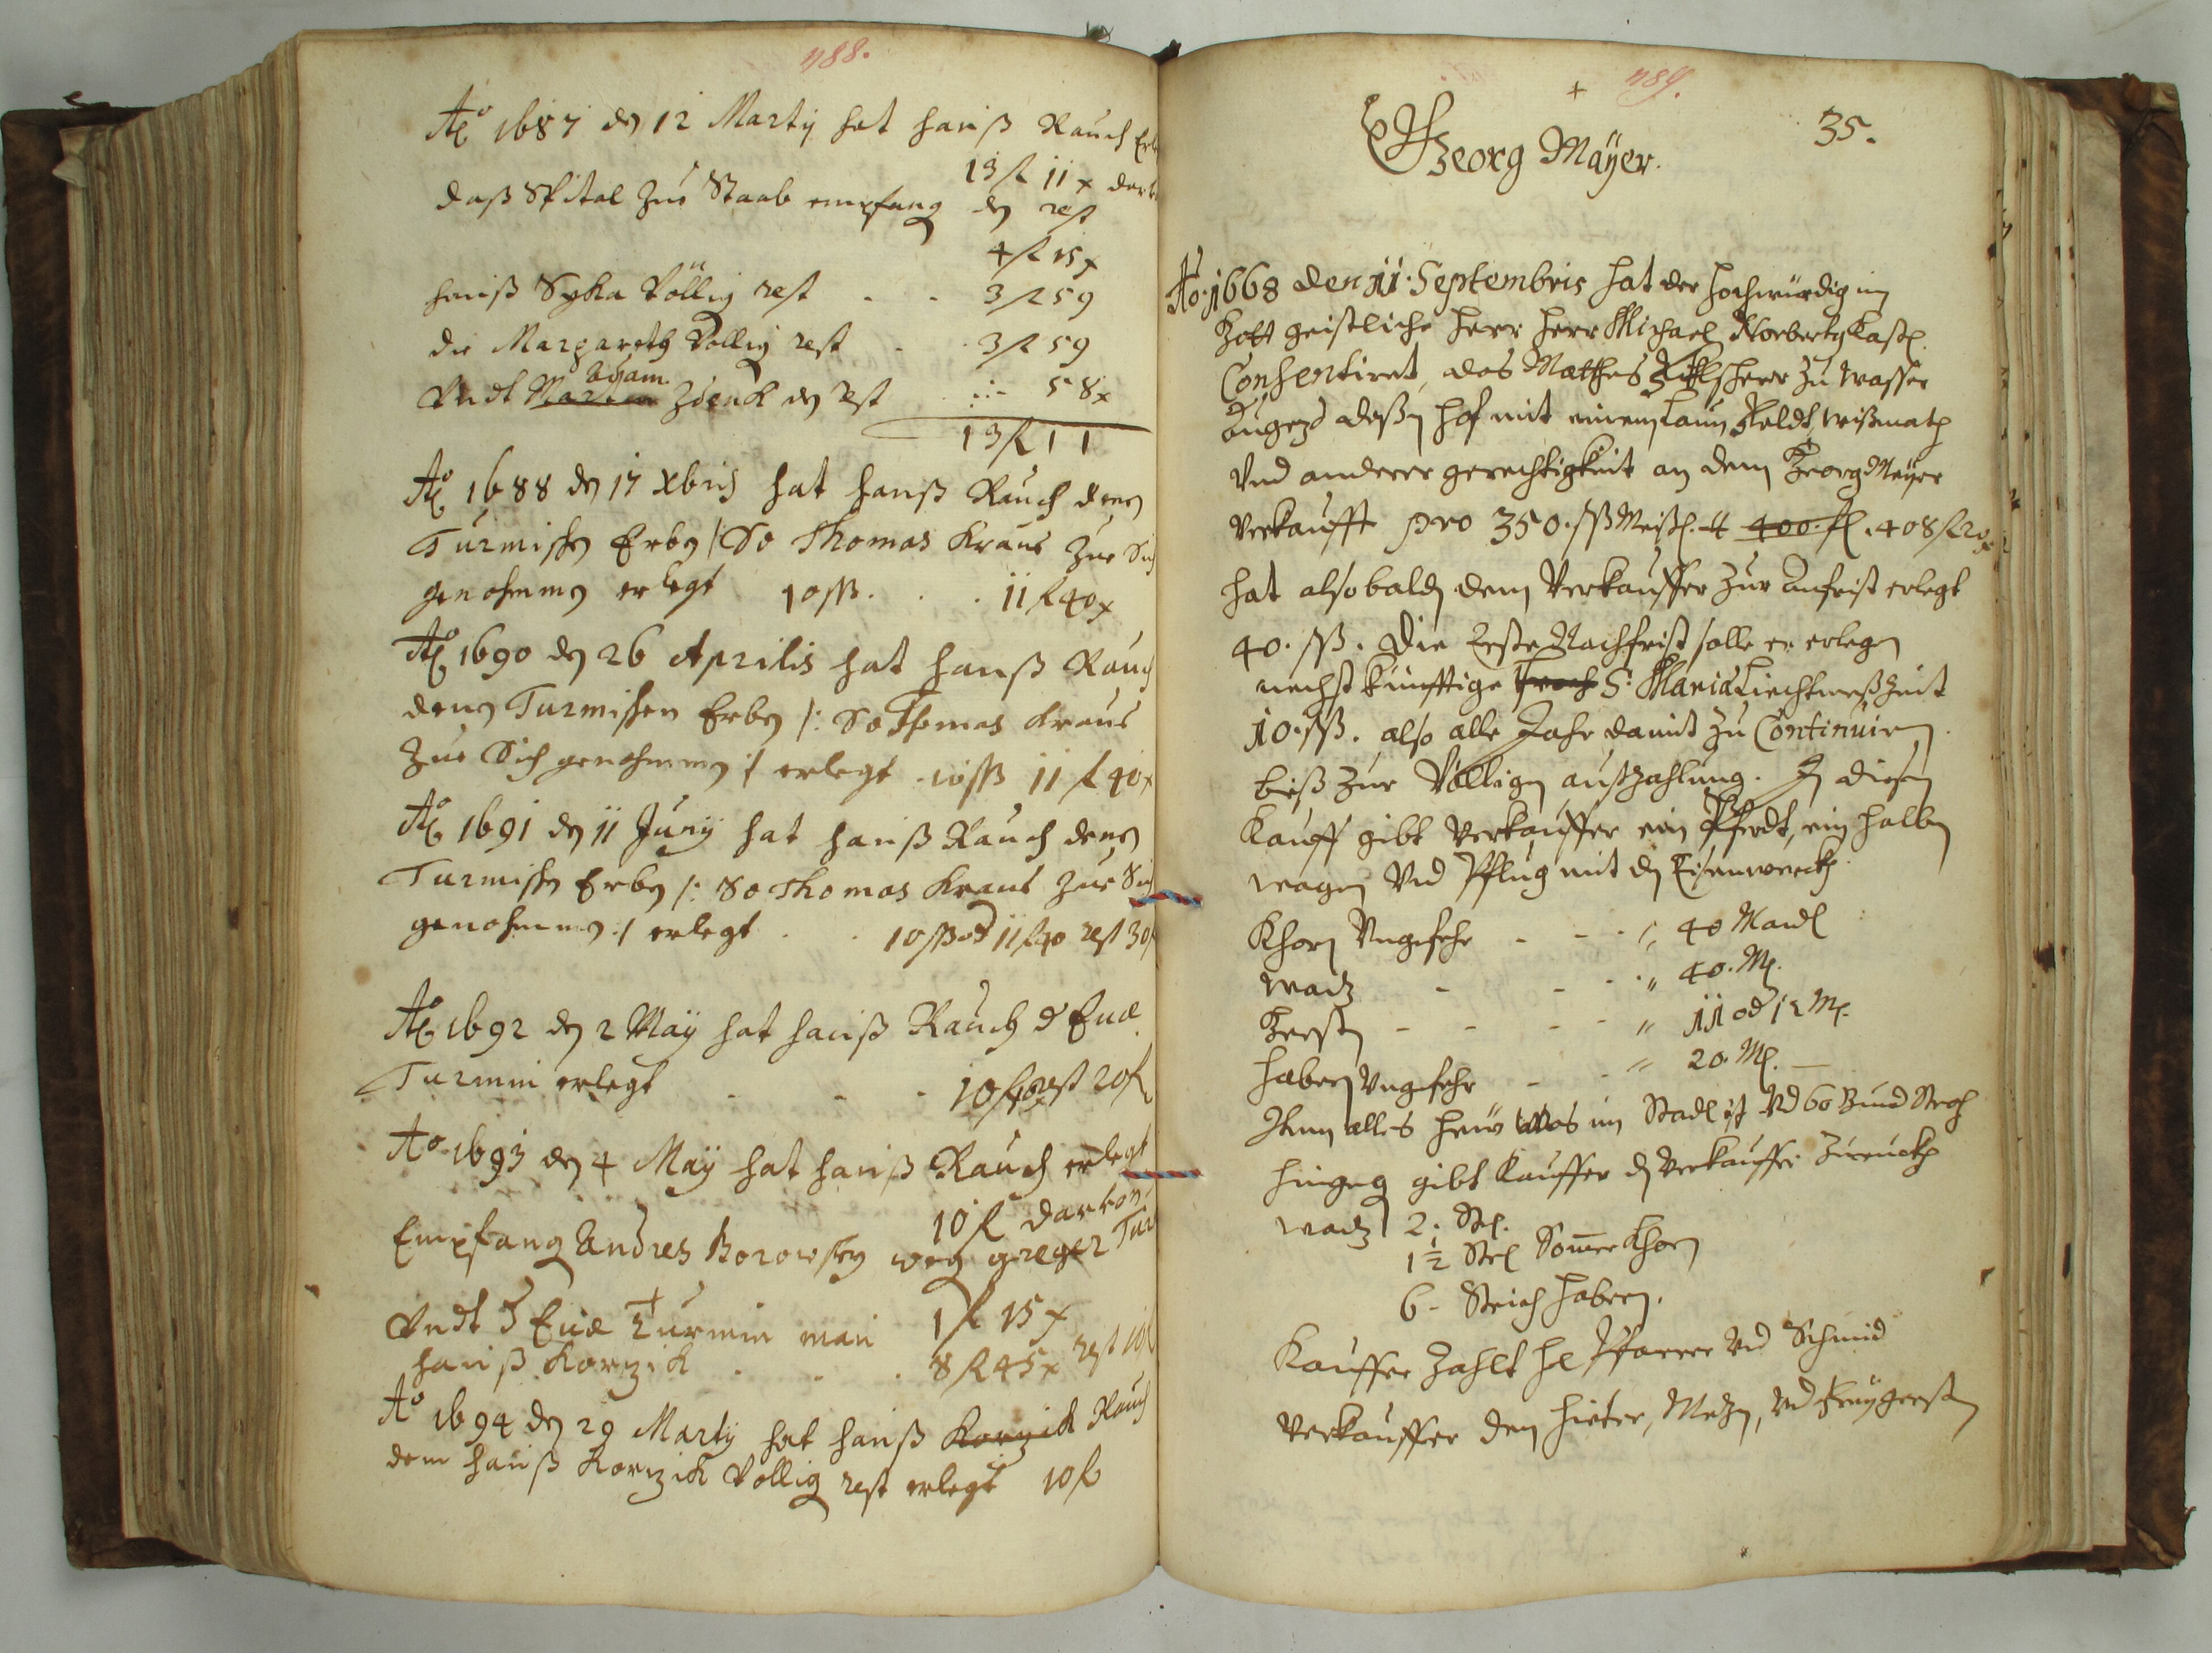 488.
Aō 1687 den 12 Martij hat Hanß Rauch Erl
13 fl 11 x dar
daß Spital zue Staab empfang den rest
4 fl 15 x
Hanß Syka Völlig rest - - 3 fl 59
die Margareth Vollig rest - 3 fl 59
Adam
Vndt Martin Zdenck den rest 58 x
13 fl 11
Aō 1688 den 17 Xbris hat Hanß Rauch denen
Turmischen Erben /: So Thomas Kraus Zue Sich
genohmmen erlegt 10 ßß . . . 11 fl 40 x
Aō 1690 den 26 Aprilis hat Hanß Rauch
denen Turmischen Erben /: So Thomas Kraus
Zue Sich genohmmen :/ erlegt 10 ßß 11 fl 40 x
Aō 1691 den 11 Junij hat Hanß Rauch denen
Turmischen Erben /: So Thomas Kraus Zue Sich
genohmmen :/ erlegt . . 10 ßß od 11 fl 40 rest 30 f
Aō 1692 den 2 Maij hat Hanß Rauch d Euæ
Turmin erlegt - - - 10 fl rest 20 fl
Aō 1693 den 4 Maij hat Hanß Rauch erlegt
10 fl darvon
Empfang Andres Borowsky weg greger Tur
1 fl 15 x
Vndt d Euæ Turmin man
Hanß Korzik . . . 8 fl 45 x rest 10 fl
Aō 1694 den 29 Martij hat Hanß Korzik Rauch
dem Hanß Korzik Völlig rest erlegt 10 fl
489.
35.
Georg Mäyer.
Ao. 1668 den 11. Septembris hat der Hochwürdig in
Gott geistliche Herr Herr Michael Norbertus
Consentiret, das Mathes zu Wasser
Augezd deßen Hof mit einem Laun Feldt, wißmath
Vnd anderer gerechtigkeit an dem Georg Mayer
Verkaufft pro 350. ßß Meißl. 400. fl. 408 fl 20 x
hat alsobalden dem Verkauffer Zur Anfrist erlegt
40. ßß. Die Erste Nachfrist solle er erlegen
nechst künfftige S. Maria Liechtmeßzeit
10. ßß. also alle Jahr damit zu Continuiren
biß zur Völligen außzahlung. In diesen
Kauff gibt Verkauffer ein Pferdt, ein halben
wagen Vnd Pflug mit den Eisenwerckh
Khorn Vngefehr - - - 40 Mandl
waitz - - - 40. M.
Gersten - - - - 11 od 12 M.
Habern Vngefehr - - 20. M.
Item alles Heü was im Stadl ist Vnd 60 Bund Stroh
Hingegen gibt Kauffer den Verkauffer Zuruckh
waitz 2. Str.
1½ Str Sommer Khorn
6 - Strich Habern.
Kauffer Zahlt Hl Pfarrer Vnd Schmid
Verkauffer den Hieter, Vnd